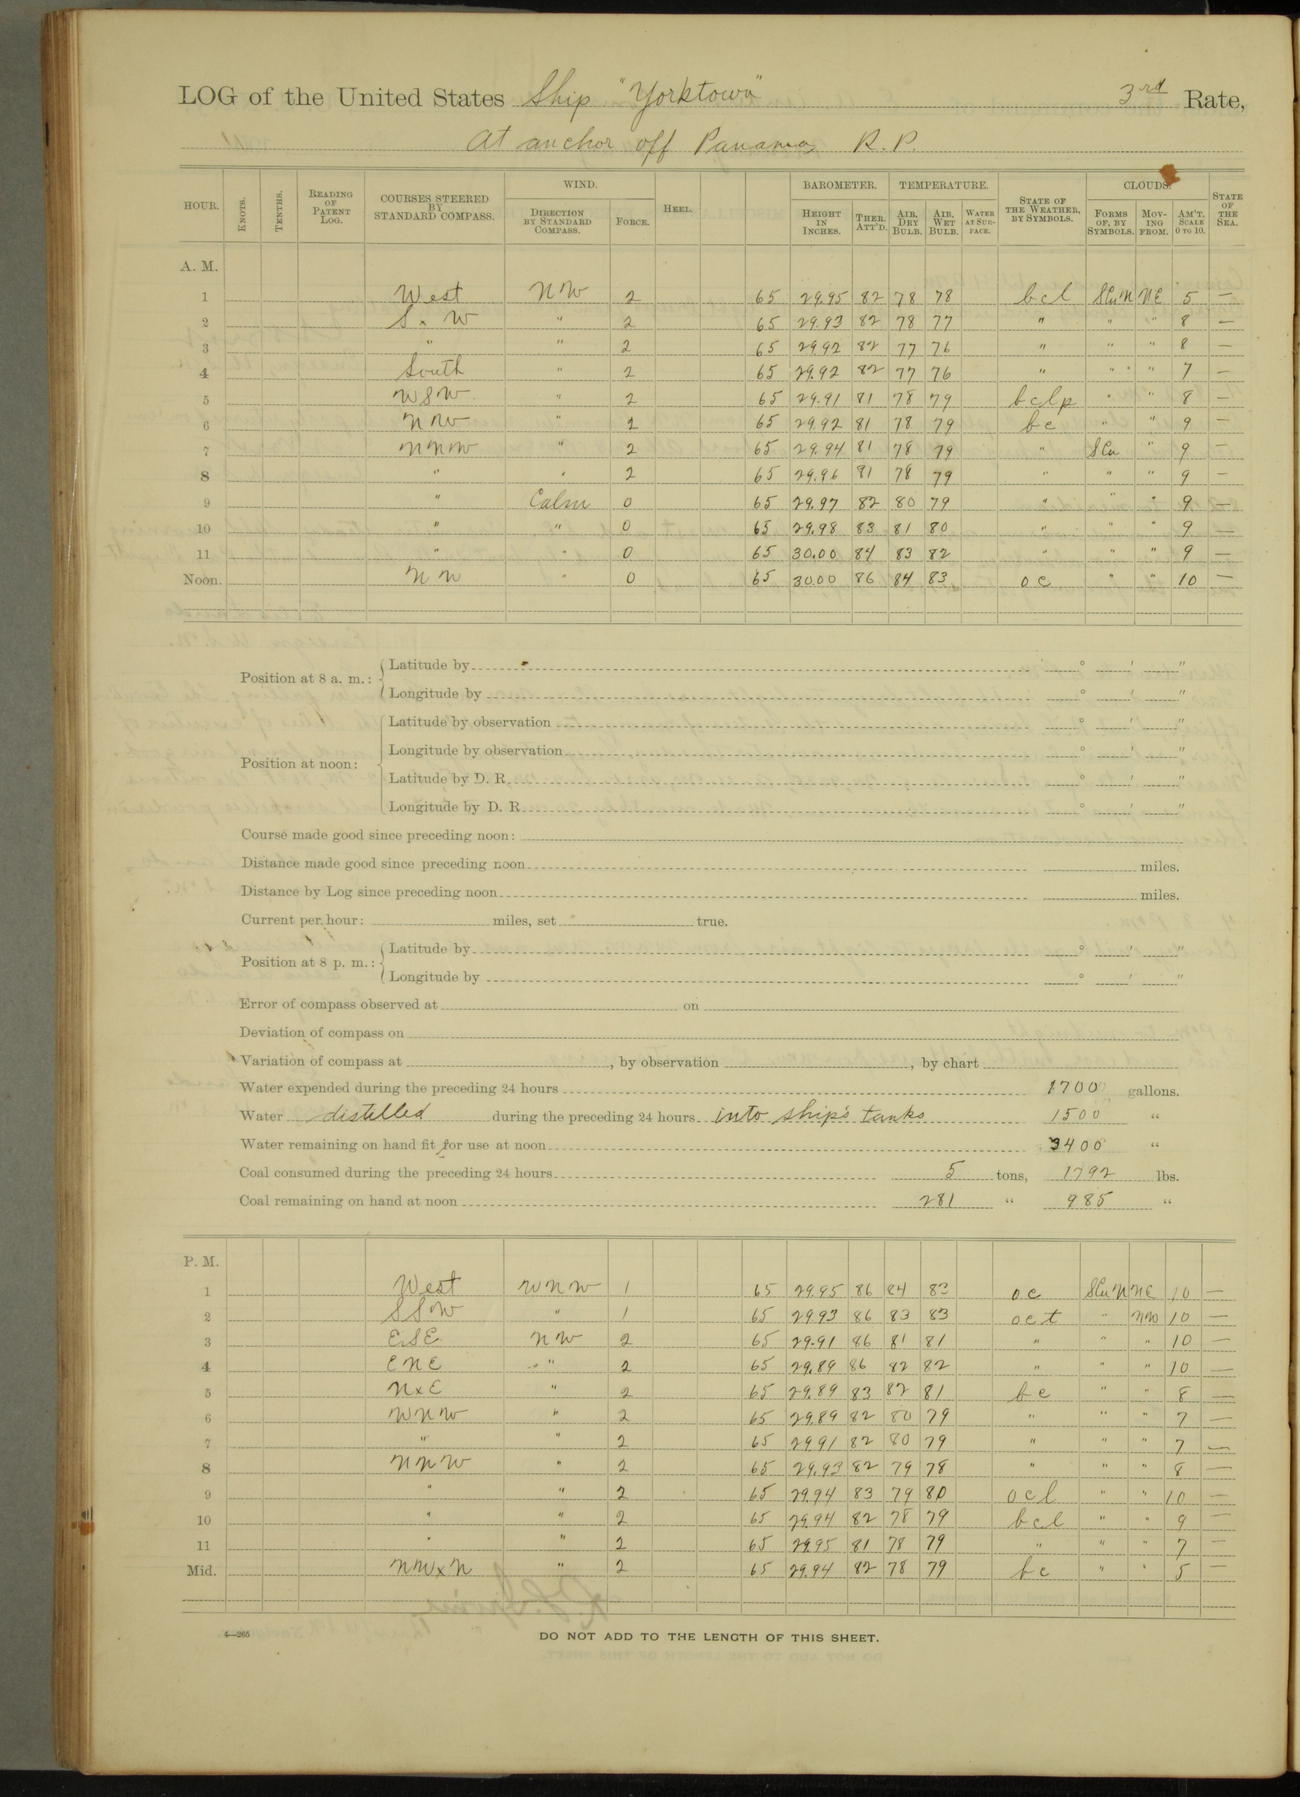 LOG of the United States Ship "Yorktown" 3rd Rate,
At anchor off Panama, R.P.
HOUR. KNOTS. TENTHS. READING OF PATENT LOG. COURSES STEERED BY STANDARD COMPASS. WIND. DIRECTION BY STANDARD COMPASS. FORCE. HEEL. BAROMETER. HEIGHT IN INCHES. THER. ATT'D. TEMPERATURE. AIR, DRY BULB. AIR, WET BULB. WATER AT SURFACE. STATE OF THE WEATHER, BY SYMBOLS. CLOUDS. FORMS OF, BY SYMBOLS. MOVING FROM. AM'T, SCALE 0 TO 10. STATE OF THE SEA.
A. M.
1 West NW 2 65 29.95 82 78 78 bcl SCu N NE 5 —
2 S x W " 2 65 29.93 82 78 77 " " " 8 —
3 " " 2 65 29.92 82 77 76 " " " 8 —
4 South " 2 65 29.92 82 77 76 " " " 7 —
5 WSW " 2 65 29.91 81 78 79 bclp " " 8 —
6 NW " 2 65 29.92 81 78 79 bc " " 9 —
7 NNW " 2 65 29.94 81 78 79 " SCu " 9 —
8 " " 2 65 29.96 81 78 79 " " " 9 —
9 " Calm 0 65 29.97 82 80 79 " " " 9 —
10 " " 0 65 29.98 83 81 80 " " " 9 —
11 " " 0 65 30.00 84 83 82 " " " 9 —
Noon. NW " 0 65 30.00 86 84 83 oc " " 10 —
Position at 8 a. m.: Latitude by ° ' "
Longitude by ° ' "
Position at noon: Latitude by observation ° ' "
Longitude by observation ° ' "
Latitude by D. R. ° ' "
Longitude by D. R. ° ' "
Course made good since preceding noon:
Distance made good since preceding noon miles.
Distance by Log since preceding noon miles.
Current per hour: miles, set true.
Position at 8 p. m.: Latitude by ° ' "
Longitude by ° ' "
Error of compass observed at on
Deviation of compass on
Variation of compass at , by observation , by chart
Water expended during the preceding 24 hours 1700 gallons.
Water distilled during the preceding 24 hours into ship's tanks 1500 "
Water remaining on hand fit for use at noon 3400 "
Coal consumed during the preceding 24 hours 5 tons, 1792 lbs.
Coal remaining on hand at noon 281 " 985 "
P. M.
1 West WNW 1 65 29.95 86 84 83 oc SCu N NE 10 —
2 SSW " 1 65 29.93 86 83 83 oct " NW 10 —
3 ESE NW 2 65 29.91 86 81 81 " " " 10 —
4 ENE " 2 65 29.89 86 82 82 " " " 10 —
5 NxE " 2 65 29.89 83 82 81 bc " " 8 —
6 WNW " 2 65 29.89 82 80 79 " " " 7 —
7 " " 2 65 29.91 82 80 79 " " " 7 —
8 NNW " 2 65 29.93 82 79 78 " " " 8 —
9 " " 2 65 29.94 83 79 80 ocl " " 10 —
10 " " 2 65 29.94 82 78 79 bcl " " 9 —
11 " " 2 65 29.95 81 78 79 " " " 7 —
Mid. NWxN " 2 65 29.94 82 78 79 bc " " 5 —
4—265
DO NOT ADD TO THE LENGTH OF THIS SHEET.